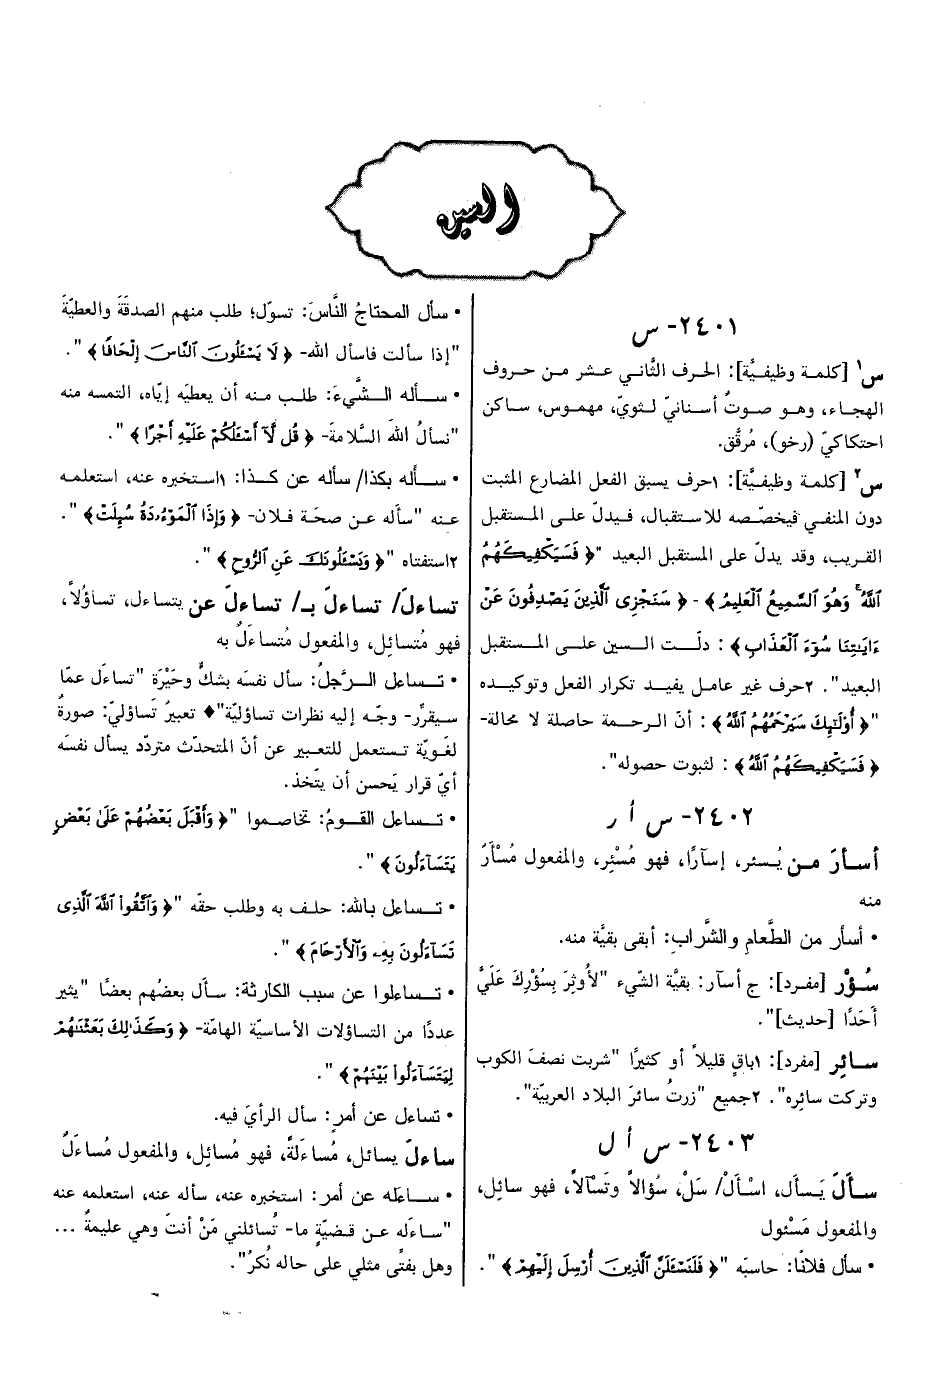 السين
٢٤٠١- س
س١ [كلمة وظيفيَّة]: الحرف الثَّاني عشر من حروف
الهجاء، وهو صوتٌ أسنانيّ لثويّ، مهموس، ساكن
احتكاكيّ (رخو)، مُرقَّق.
س٢ [كلمة وظيفيَّة]: ١حرف يسبق الفعل المضارع المثبت
دون المنفي فيخصّصه للاستقبال، فيدلّ على المستقبل
القريب، وقد يدلّ على المستقبل البعيد "﴿ فَسَيَكْفِيكَهُمُ
ٱللَّهُ وَهُوَ ٱلسَّمِيعُ ٱلْعَلِيمُ ﴾- ﴿ سَنَجْزِى ٱلَّذِينَ يَصْدِفُونَ عَنْ
ءَايَٰتِنَا سُوٓءَ ٱلْعَذَابِ ﴾: دلَّت السين على المستقبل
البعيد". ٢حرف غير عامل يفيد تكرار الفعل وتوكيده
"﴿ أُوْلَٰٓئِكَ سَيَرْحَمُهُمُ ٱللَّهُ ﴾: أنّ الرحمة حاصلة لا محالة-
﴿ فَسَيَكْفِيكَهُمُ ٱللَّهُ ﴾: لثبوت حصوله".
٢٤٠٢- س أ ر
أسأرَ من يُسئر، إسآرًا، فهو مُسْئِر، والمفعول مُسْأَرٌ
منه
• أسأر من الطَّعامِ والشَّرابِ: أبقى بقيَّة منه.
سُؤْر [مفرد]: ج أسآر: بقيَّة الشّيء "لأُوثِرَ بِسُؤْرِكَ عَلَيَّ
أَحَدًا [حديث]".
سائِر [مفرد]: ١باقٍ قليلاً أو كثيرًا "شربت نصفَ الكوب
وتركت سائِره". ٢جميع "زرتُ سائرَ البلاد العربيّة".
٢٤٠٣- س أ ل
سألَ يَسأل، اسْألْ/ سَلْ، سُؤالاً وتَسآلاً، فهو سائِل،
والمفعول مَسْئول
• سأل فلانًا: حاسبَه "﴿ فَلَنَسْـَٔلَنَّ ٱلَّذِينَ أُرْسِلَ إِلَيْهِمْ ﴾".
• سأل المحتاجُ النَّاسَ: تسوّل؛ طلب منهم الصدقَةَ والعطيَّةَ
"إذا سألت فاسأل الله- ﴿ لَا يَسْـَٔلُونَ ٱلنَّاسَ إِلْحَافًا ﴾".
• سأله الشَّيءَ: طلب منه أن يعطيَه إيّاه، التمسه منه
"نسألُ اللهَ السَّلامةَ- ﴿ قُل لَّآ أَسْـَٔلُكُمْ عَلَيْهِ أَجْرًا ﴾".
• سأله بكذا/ سأله عن كذا: ١استخبره عنه، استعلمه
عنه "سأله عن صحّة فلان- ﴿ وَإِذَا ٱلْمَوْءُۥدَةُ سُئِلَتْ ﴾".
٢استفتاه "﴿ وَيَسْـَٔلُونَكَ عَنِ ٱلرُّوحِ ﴾".
تساءلَ/ تساءلَ بـ/ تساءلَ عن يتساءل، تساؤُلاً،
فهو مُتسائِل، والمفعول مُتساءَلٌ به
• تساءل الرَّجلُ: سأل نفسَه بشكٍّ وحَيْرَة "تساءَل عمّا
سيقرِّر- وجّه إليه نظرات تساؤليّة"♦ تعبيرٌ تَساؤليّ: صورةٌ
لغَويّة تستعمل للتعبير عن أنّ المتحدّث متردّد يسأل نفسَه
أيّ قرار يَحسن أن يتّخذ.
• تساءل القومُ: تخاصموا "﴿ وَأَقْبَلَ بَعْضُهُمْ عَلَىٰ بَعْضٍ
يَتَسَآءَلُونَ ﴾".
• تساءل بالله: حلف به وطلب حقّه "﴿ وَٱتَّقُواْ ٱللَّهَ ٱلَّذِى
تَسَآءَلُونَ بِهِۦ وَٱلْأَرْحَامَ ﴾".
• تساءلوا عن سبب الكارثة: سأل بعضُهم بعضًا "يثير
عددًا من التساؤلات الأساسيّة الهامّة- ﴿ وَكَذَٰلِكَ بَعَثْنَٰهُمْ
لِيَتَسَآءَلُواْ بَيْنَهُمْ ﴾".
• تساءل عن أمرٍ: سأل الرأيَ فيه.
ساءلَ يسائل، مُساءَلةً، فهو مُسائِل، والمفعول مُساءَلٌ
• ساءَله عن أمر: استخبره عنه، سأله عنه، استعلمه عنه
"ساءَله عن قضيّةٍ ما- تُسائلني مَنْ أنتَ وهي عليمةٌ ...
وهل بفتًى مثلي على حاله نُكرُ".